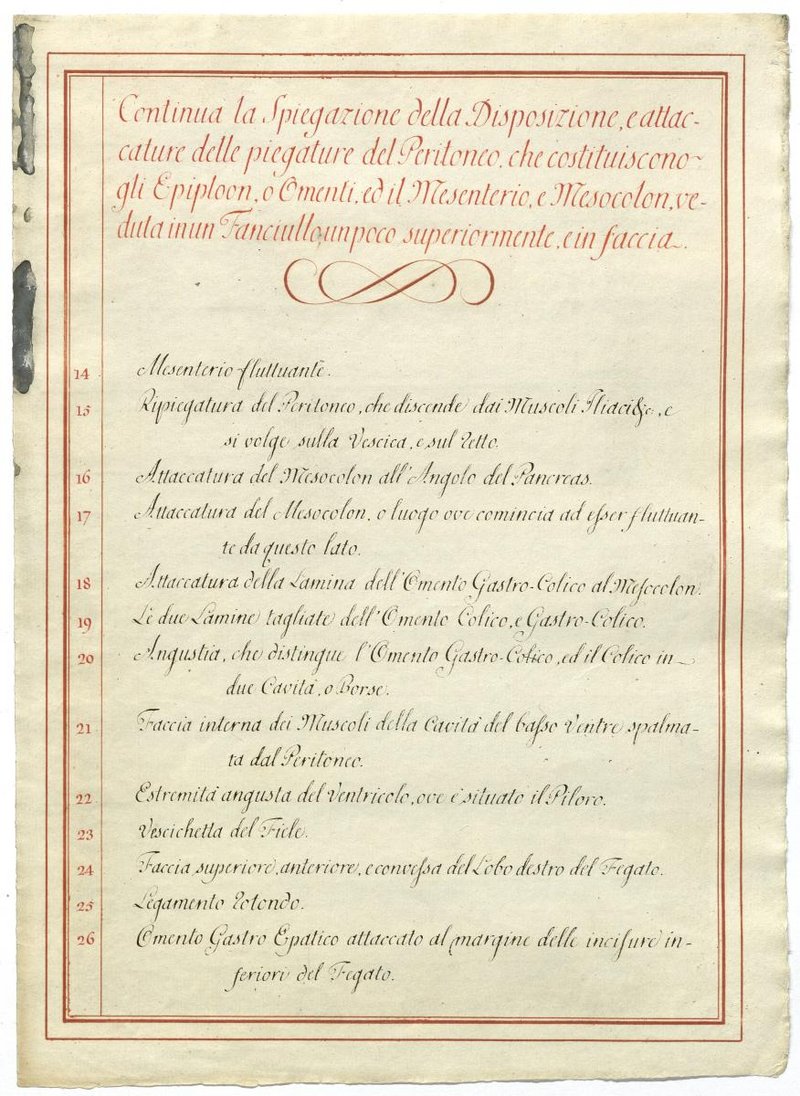 Continua la Spiegazione della Disposizione, e attac-
cature delle piegature del Peritoneo, che costituiscono
gli Epiploon, o Omenti, ed il Mesenterio, e Mesocolon, ve-
duta in un Fanciullo un poco superiormente, e in faccia.
14 Mesenterio fluttuante.
15 Ripiegatura del Peritoneo, che discende dai Muscoli Iliaci &c., e
si volge sulla Vescica, e sul Retto.
16 Attaccatura del Mesocolon all'Angolo del Pancreas.
17 Attaccatura del Mesocolon, o luogo ove comincia ad esser fluttuan-
te da questo lato.
18 Attaccatura della Lamina dell'Omento Gastro-Colico al Mesocolon.
19 Le due Lamine tagliate dell'Omento Colico, e Gastro-Colico.
20 Angustia, che distingue l'Omento Gastro-Colico, ed il Colico in
due Cavità, o Borse.
21 Faccia interna dei Muscoli della Cavità del basso Ventre spalma-
ta dal Peritoneo.
22 Estremità angusta del Ventricolo, ove è situato il Piloro.
23 Vescichetta del Fiele.
24 Faccia superiore, anteriore, e convessa del Lobo destro del Fegato.
25 Legamento Rotondo.
26 Omento Gastro Epatico attaccato al margine delle incisure in-
feriori del Fegato.